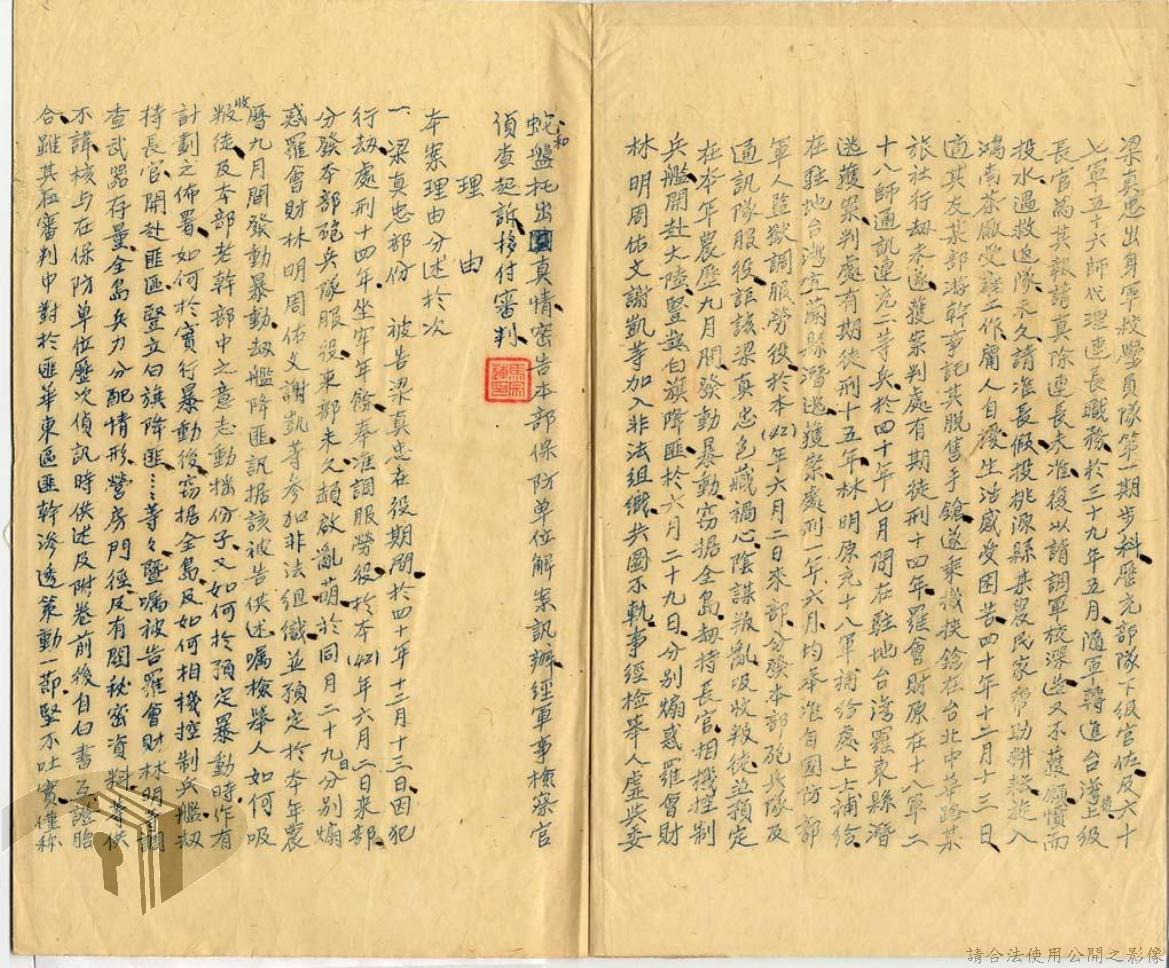 梁真忠出身軍校學員隊第一期步科歷充部隊下級官佐及六十
七軍五十六師代理連長職務於三十九年五月隨軍轉進台灣後上級
長官為其報請真除連長未准復以請調軍校深造又不獲願憤而
投水遇救返隊未久請准長假投桃源縣某農民家幫助耕種旋入
鴻南茶廠受雇工作庸人自擾生活感受困苦四十年十二月十三日
適其友某部游幹事託其脫售手鎗遂乘機挾鎗在台北中華路某
旅社行劫未遂獲案判處有期徒刑十四年羅會財原在十八軍二
十八師通訊連充二等兵於四十年七月間在駐地台灣羅東縣潛
逃獲案判處有期徒刑十五年林明原充十八軍補給處上士補給
在駐地台灣宜蘭縣潛逃獲案處刑一年六月均奉准自國防部
軍人監獄調服勞役於本(42)年六月二日來部分發本部砲兵隊及
通訊隊服役詎該梁真忠包藏禍心陰謀叛亂吸收叛徒並預定
在本年農歷九月間發動暴動窃据全島刼持長官相機控制
兵艦開赴大陸豎起白旗降匪於六月二十九日分別煽惑羅會財
林明周佑文謝凱等加入非法組織共圖不軌事經檢舉人虛與委
蛇和盤托出真情密告本部保防單位解案訊辦經軍事檢察官
偵查起訴移付審判
理由
本案理由分述於次
一、梁真忠部份 被告梁真忠在役期間於四十年十二月十三日因犯
行刼處刑十四年坐牢年餘奉准調服勞役於本(42)年六月二日來部
分發本部砲兵隊服役來部未久頓啟亂萌於同月二十九日分別煽
惑羅會財林明周佑文謝凱等參加非法組織並預定於本年農
曆九月間發動暴動刼艦降匪訊据該被告供述囑檢舉人如何吸
收叛徒及本部老幹部中之意志動搖份子又如何於預定暴動時作有
計劃之佈署如何於實行暴動後窃据全島及如何相機控制兵艦刼
持長官開赴匪區豎立白旗降匪……等々暨囑被告羅會財林明等調
查武器存量全島兵力分配情形營房門徑及有關秘密資料等供
不諱核与在保防單位歷次偵訊時供述及附卷前後自白書互證脗
合雖其在審判中對於匪華東區匪幹滲透策動一節堅不吐實僅称
請合法使用公開之影像